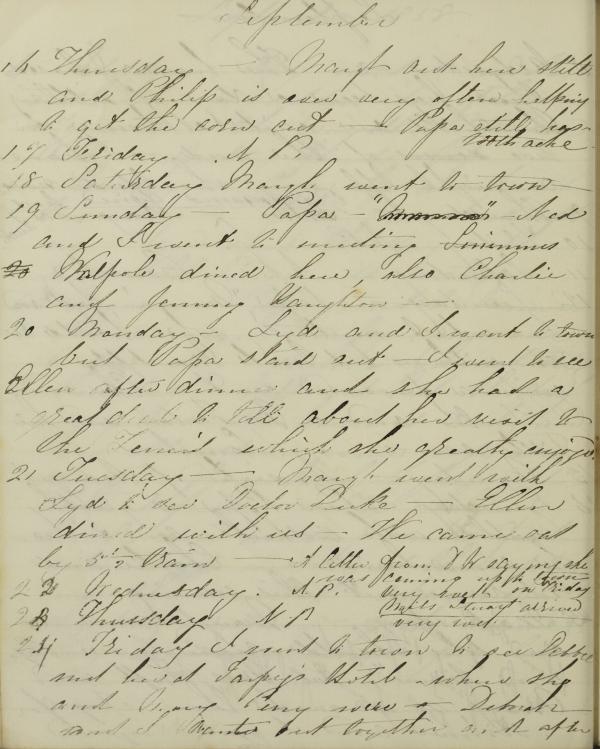 September
16 Thursday — Margt out here still
and Philip is over very often helping
to get the corn cut — Papa still has
tooth ache
17 Friday N P.
18 Saturday Margt went to town
19 Sunday — Papa — Ned
and I went to meeting
Walpole dined here, also Charlie
and
20 Monday — Lyd and I went to town
but Papa staid out — I went to see
Ellen after dinner and she had a
great deal to tell about her visit to
the which she greatly enjoyed.
21 Tuesday — Margt went with
Lyd to see Doctor — Ellen
dined with us — We came out
by 5½ train — A letter from saying she
was coming up to town
on Friday
22 Wednesday. N P. very wet
arrived
23 Thursday N P very wet
24 Friday I went to town to see
met her at Hotel — where she
and were —
and I went out together and after